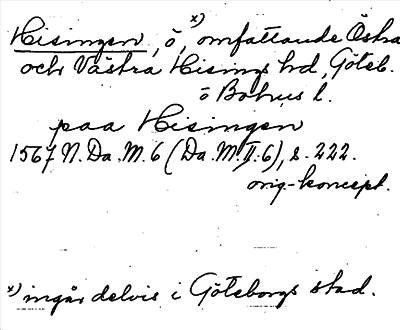 Hisingen, ö, x) omfattande Östra
och Västra Hisings hd, Göteb.
o Bohus l.
paa Hisingen
1567 N. Da. M. 6 (Da. M. II: 6), s. 222.
orig.-koncept.
x) ingår delvis i Göteborgs stad.